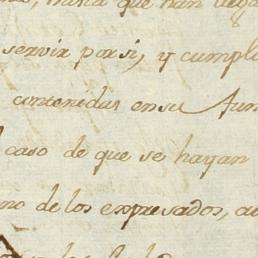 hasta que han llega
servir por si, y cumpli
contenidas en su Fun
caso de que se hayan
no de los expresados, au